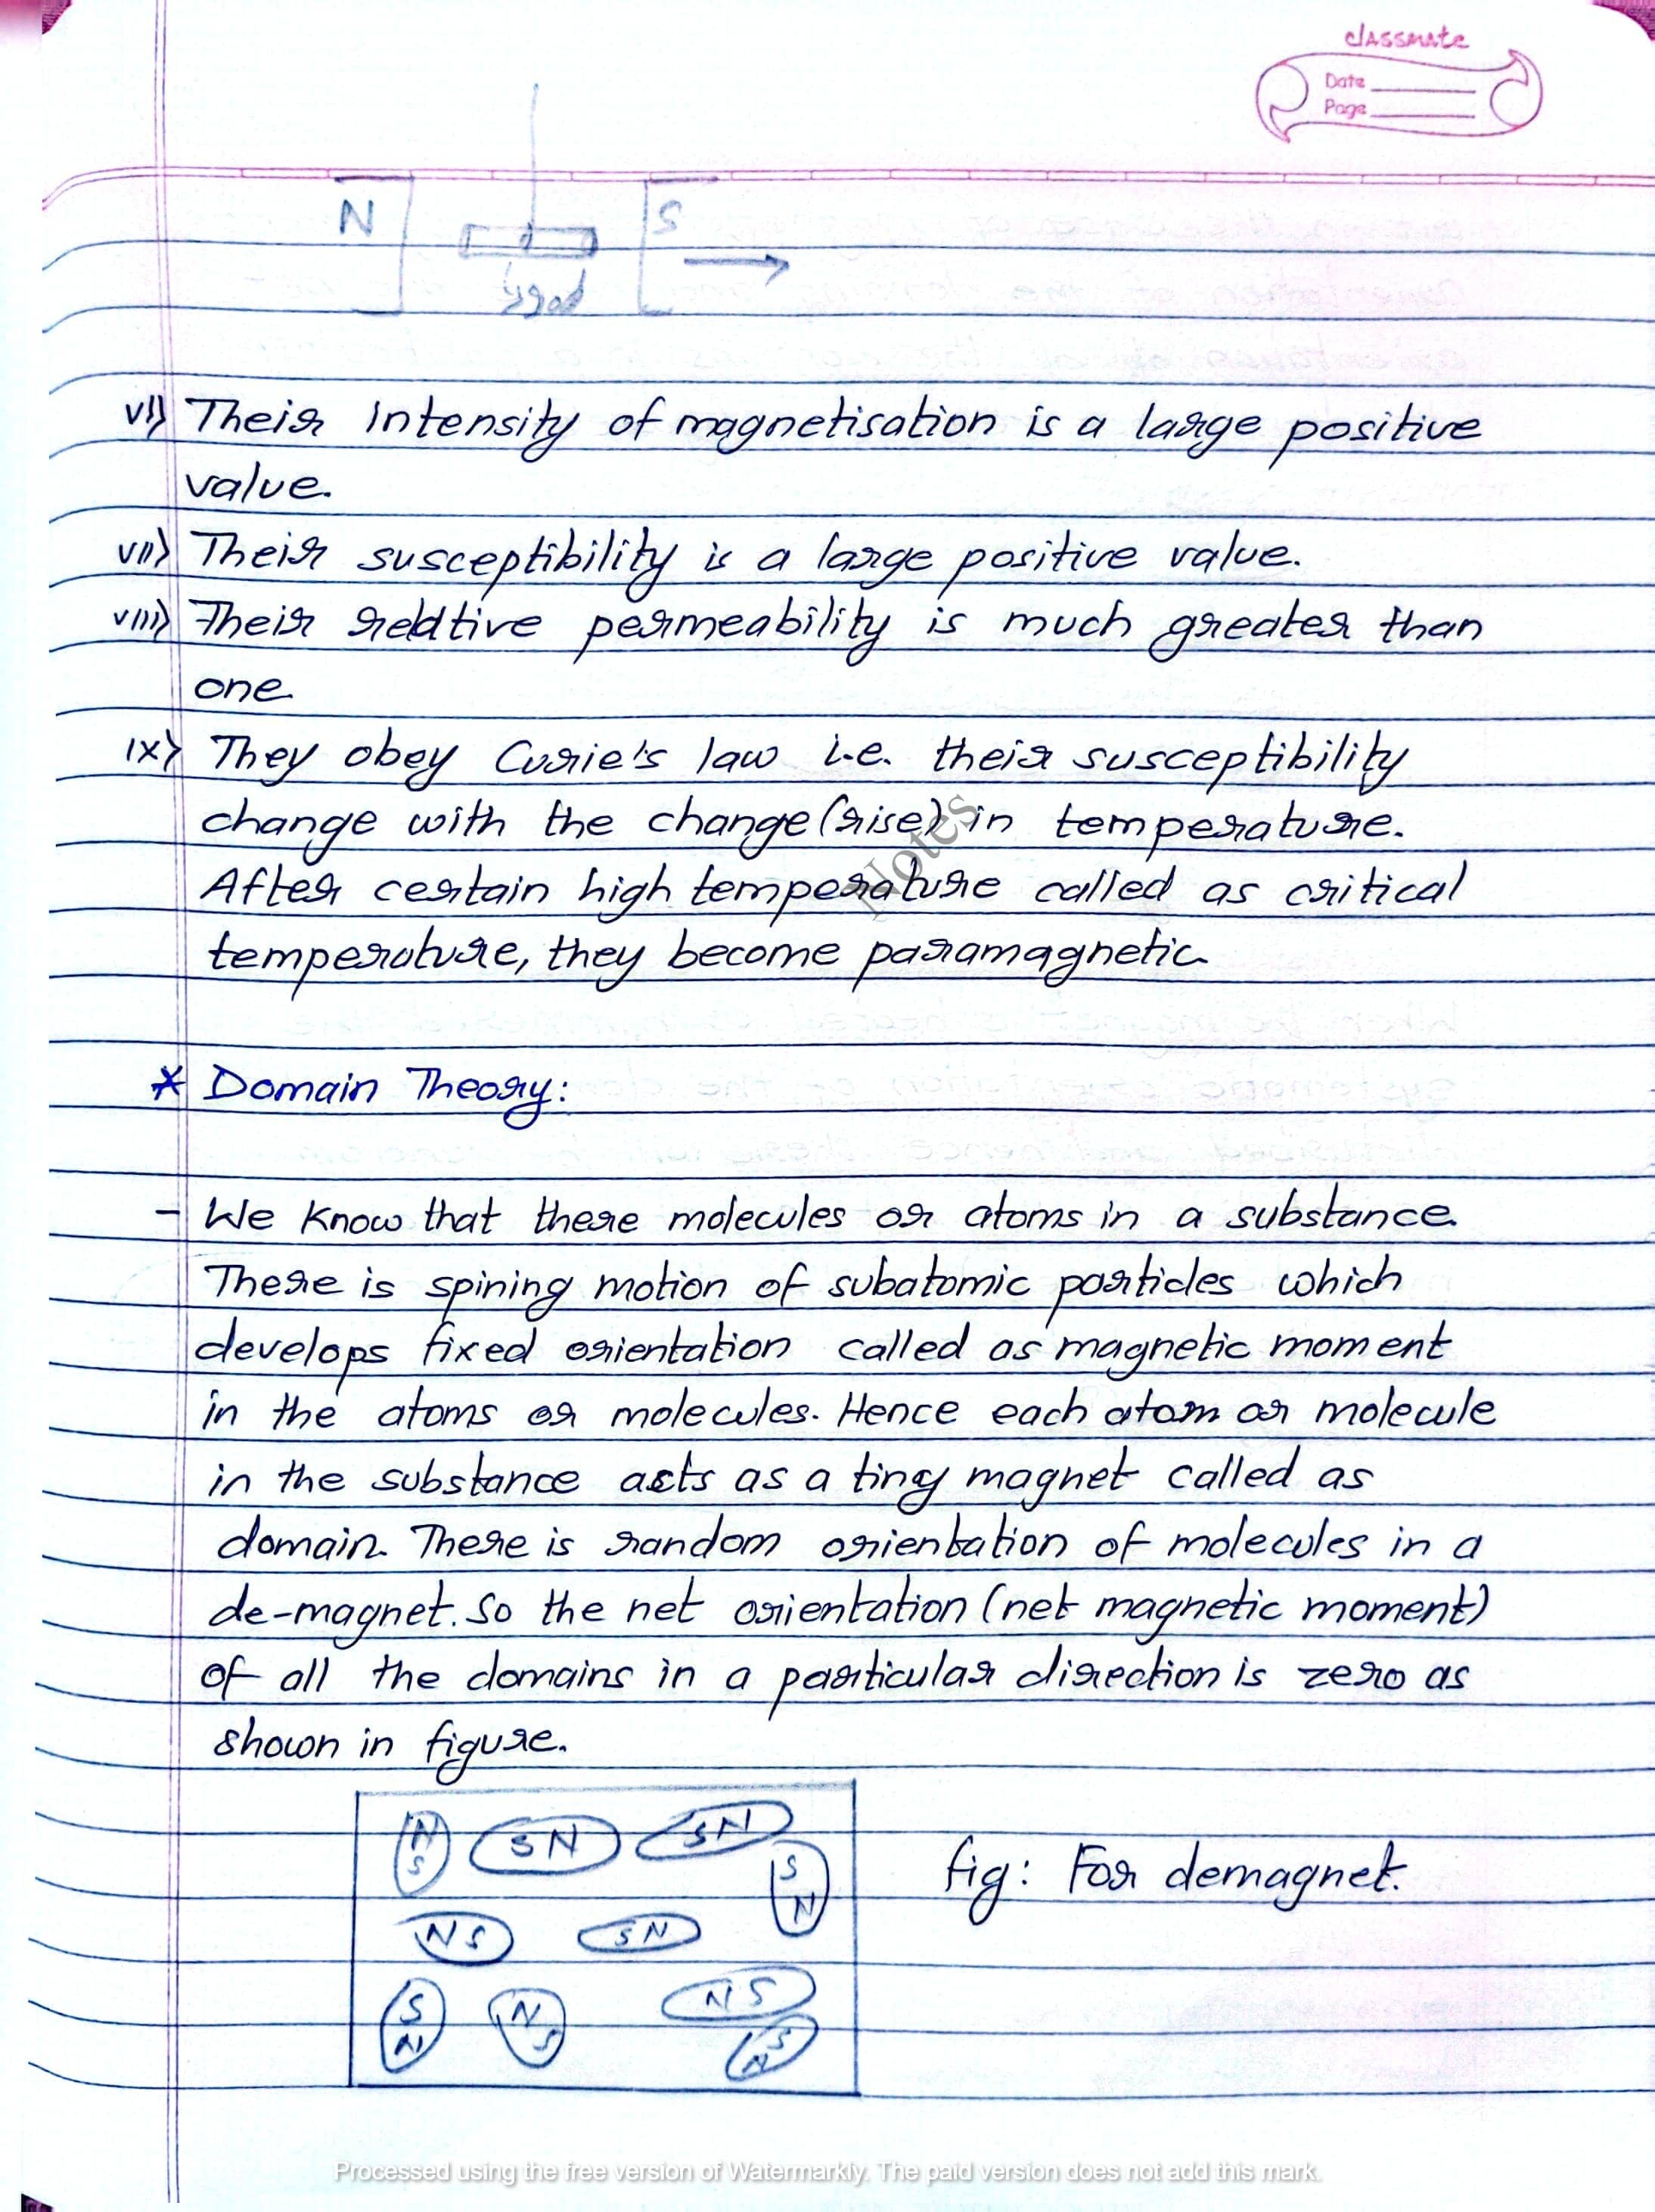 classmate
Date
Page
N S
vi) Their Intensity of magnetisation is a large positive
value.
vii) Their susceptibility is a large positive value.
viii) Their relative permeability is much greater than
one
ix) They obey Curie's law i.e. their susceptibility
change with the change (rise) in temperature.
After certain high temperature called as critical
temperature, they become paramagnetic
Notes
* Domain Theory:
- We Know that there molecules or atoms in a substance.
There is spining motion of subatomic particles which
develops fixed orientation called as magnetic moment
in the atoms or molecules. Hence each atom or molecule
in the substance acts as a tiny magnet called as
domain. There is random orientation of molecules in a
de-magnet. So the net orientation (net magnetic moment)
of all the domains in a particular direction is zero as
shown in figure.
N S
S N
S N
S N
fig: For demagnet.
N S
S N
S N
N S
N S
N S
Processed using the free version of Watermarkly. The paid version does not add this mark.